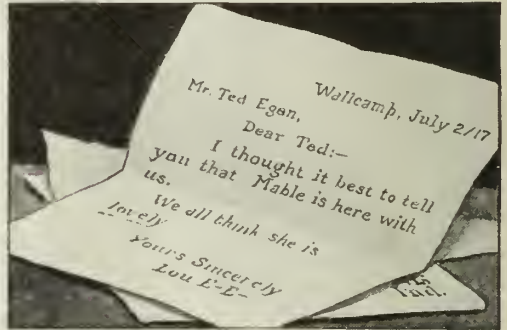 Wallcamp, July 2/17
Mr. Ted Egan,
Dear Ted:—
I thought it best to tell
you that Mable is here with
us.
We all think she is
lovely
Yours Sincerely
Lou E-E-